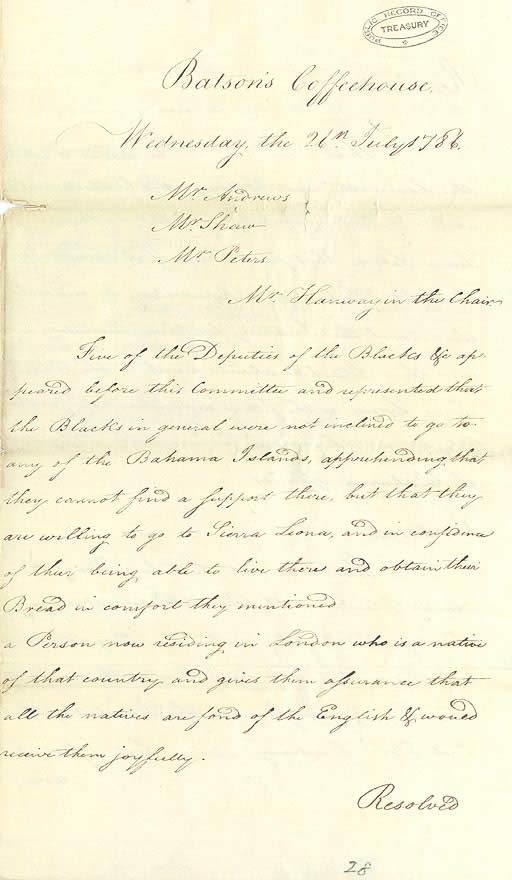 PUBLIC RECORD OFFICE
TREASURY
Batson's Coffeehouse.
Wednesday, the 26th. July 1786.
Mr. Andrews
Mr. Shaw
Mr. Peters
Mr. Hanway in the Chair
Five of the Deputies of the Blacks &c ap,
peared before this Committee and represented that
the Blacks in general were not inclined to go to
any of the Bahama Islands, apprehending that
they cannot find a support there, but that they
are willing to go to Sierra Leona, and in confidence
of their being able to live there and obtain their
Bread in comfort they mentioned
a Person now residing in London who is a native
of that country and gives them assurance that
all the natives are fond of the English & would
receive them joyfully.
Resolved
28